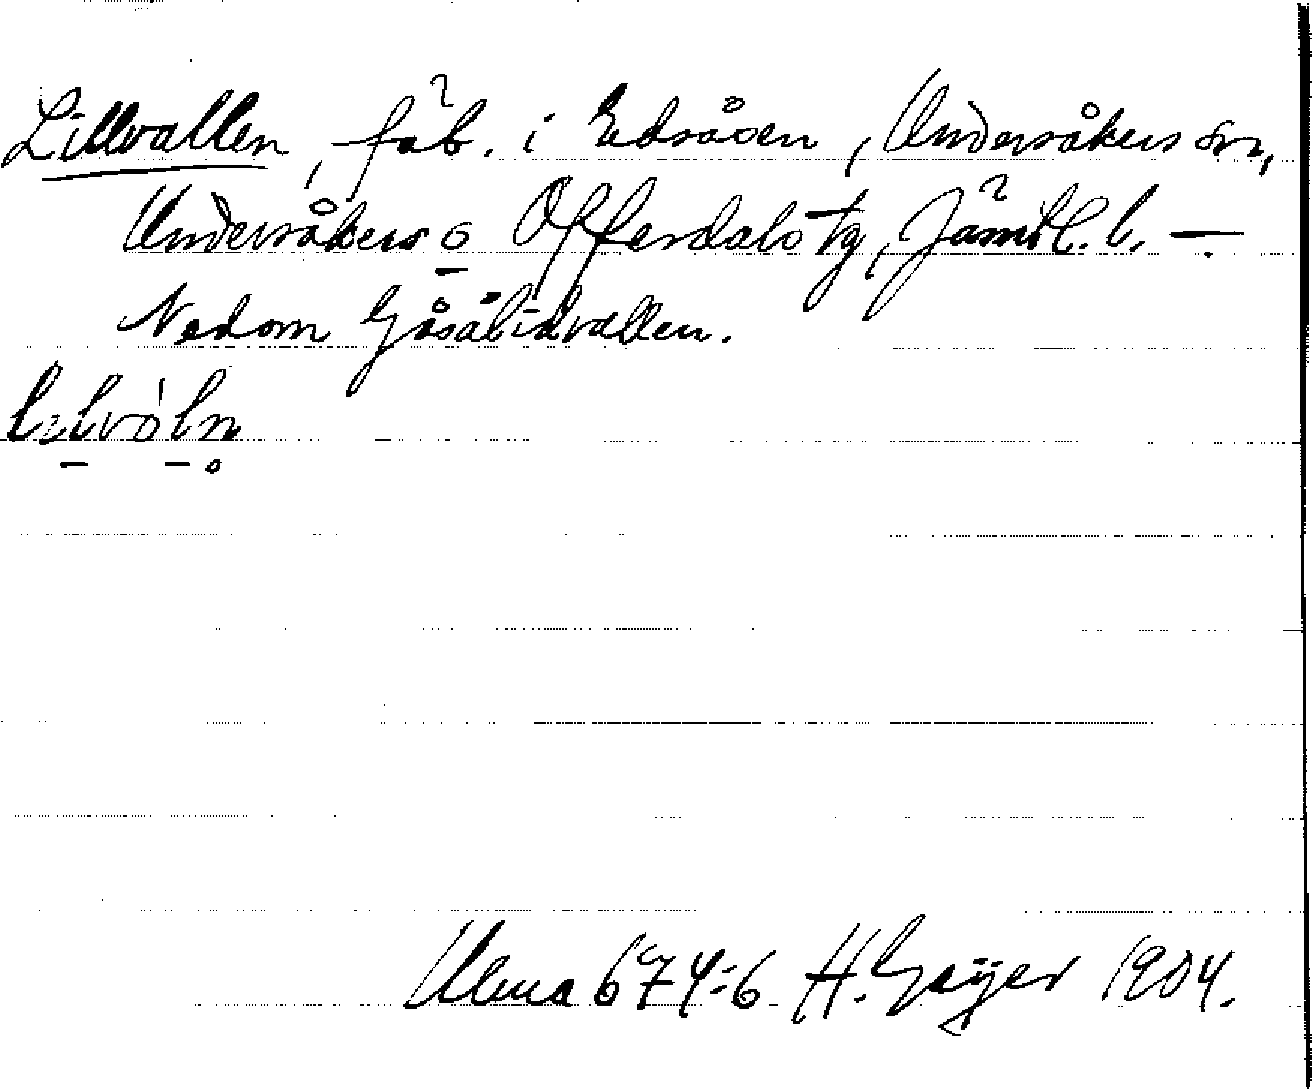 Lillvallen, fäb. i Edsåsen, Undersåkers sn,
Undersåkers o Offerdals tg, Jämtl. l. —.
Nedom Gåsålidvallen.
Ulma 674:6 H. Geijer 1904.